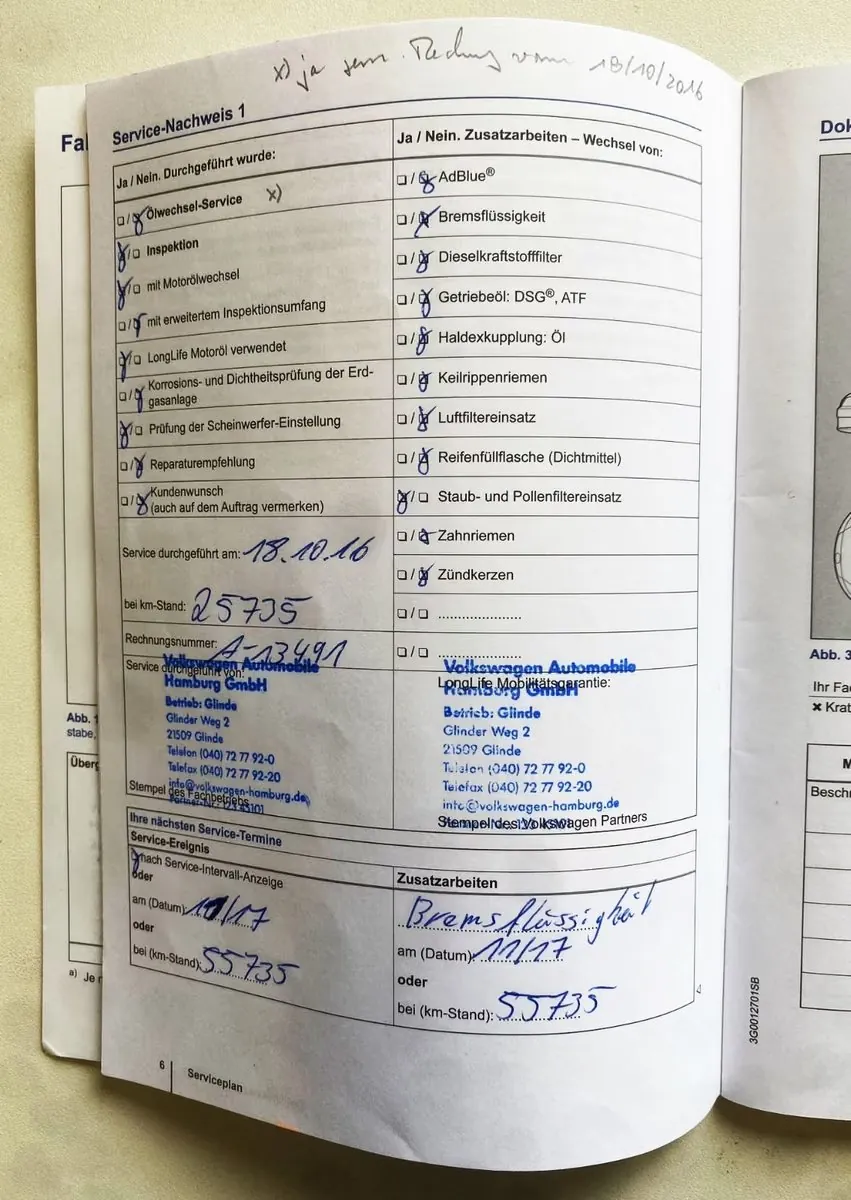 x) ja gem. Rechnung vom 18/10/2016
Service-Nachweis 1
Ja / Nein. Durchgeführt wurde:
❏ / ❏ Ölwechsel-Service x)
❏ / ❏ Inspektion
❏ / ❏ mit Motorölwechsel
❏ / ❏ mit erweitertem Inspektionsumfang
❏ / ❏ LongLife Motoröl verwendet
❏ / ❏ Korrosions- und Dichtheitsprüfung der Erd-
gasanlage
❏ / ❏ Prüfung der Scheinwerfer-Einstellung
❏ / ❏ Reparaturempfehlung
❏ / ❏ Kundenwunsch
(auch auf dem Auftrag vermerken)
Service durchgeführt am: 18.10.16
bei km-Stand: 25735
Rechnungsnummer: A-13491
Service durchgeführt von:
Volkswagen Automobile
Hamburg GmbH
Betrieb: Glinde
Glinder Weg 2
21509 Glinde
Telefon (040) 72 77 92-0
Telefax (040) 72 77 92-20
info@volkswagen-hamburg.de
Stempel des Fachbetriebs
Ja / Nein. Zusatzarbeiten – Wechsel von:
❏ / ❏ AdBlue®
❏ / ❏ Bremsflüssigkeit
❏ / ❏ Dieselkraftstofffilter
❏ / ❏ Getriebeöl: DSG®, ATF
❏ / ❏ Haldexkupplung: Öl
❏ / ❏ Keilrippenriemen
❏ / ❏ Luftfiltereinsatz
❏ / ❏ Reifenfüllflasche (Dichtmittel)
❏ / ❏ Staub- und Pollenfiltereinsatz
❏ / ❏ Zahnriemen
❏ / ❏ Zündkerzen
❏ / ❏ .....................
❏ / ❏ .....................
Volkswagen Automobile
LongLife Mobilitätsgarantie:
Hamburg GmbH
Betrieb: Glinde
Glinder Weg 2
21509 Glinde
Telefon (040) 72 77 92-0
Telefax (040) 72 77 92-20
info@volkswagen-hamburg.de
Stempel des Volkswagen Partners
Ihre nächsten Service-Termine
Service-Ereignis
nach Service-Intervall-Anzeige
oder
am (Datum): /17
oder
bei (km-Stand): 55735
Zusatzarbeiten
Bremsflüssigkeit
am (Datum): 11/17
oder
bei (km-Stand): 55735
6
Serviceplan
3G0012701SB
Abb. 1
stabe,
a) Je
Dok
Abb. 3
Ihr Fa
✖ Krat
M